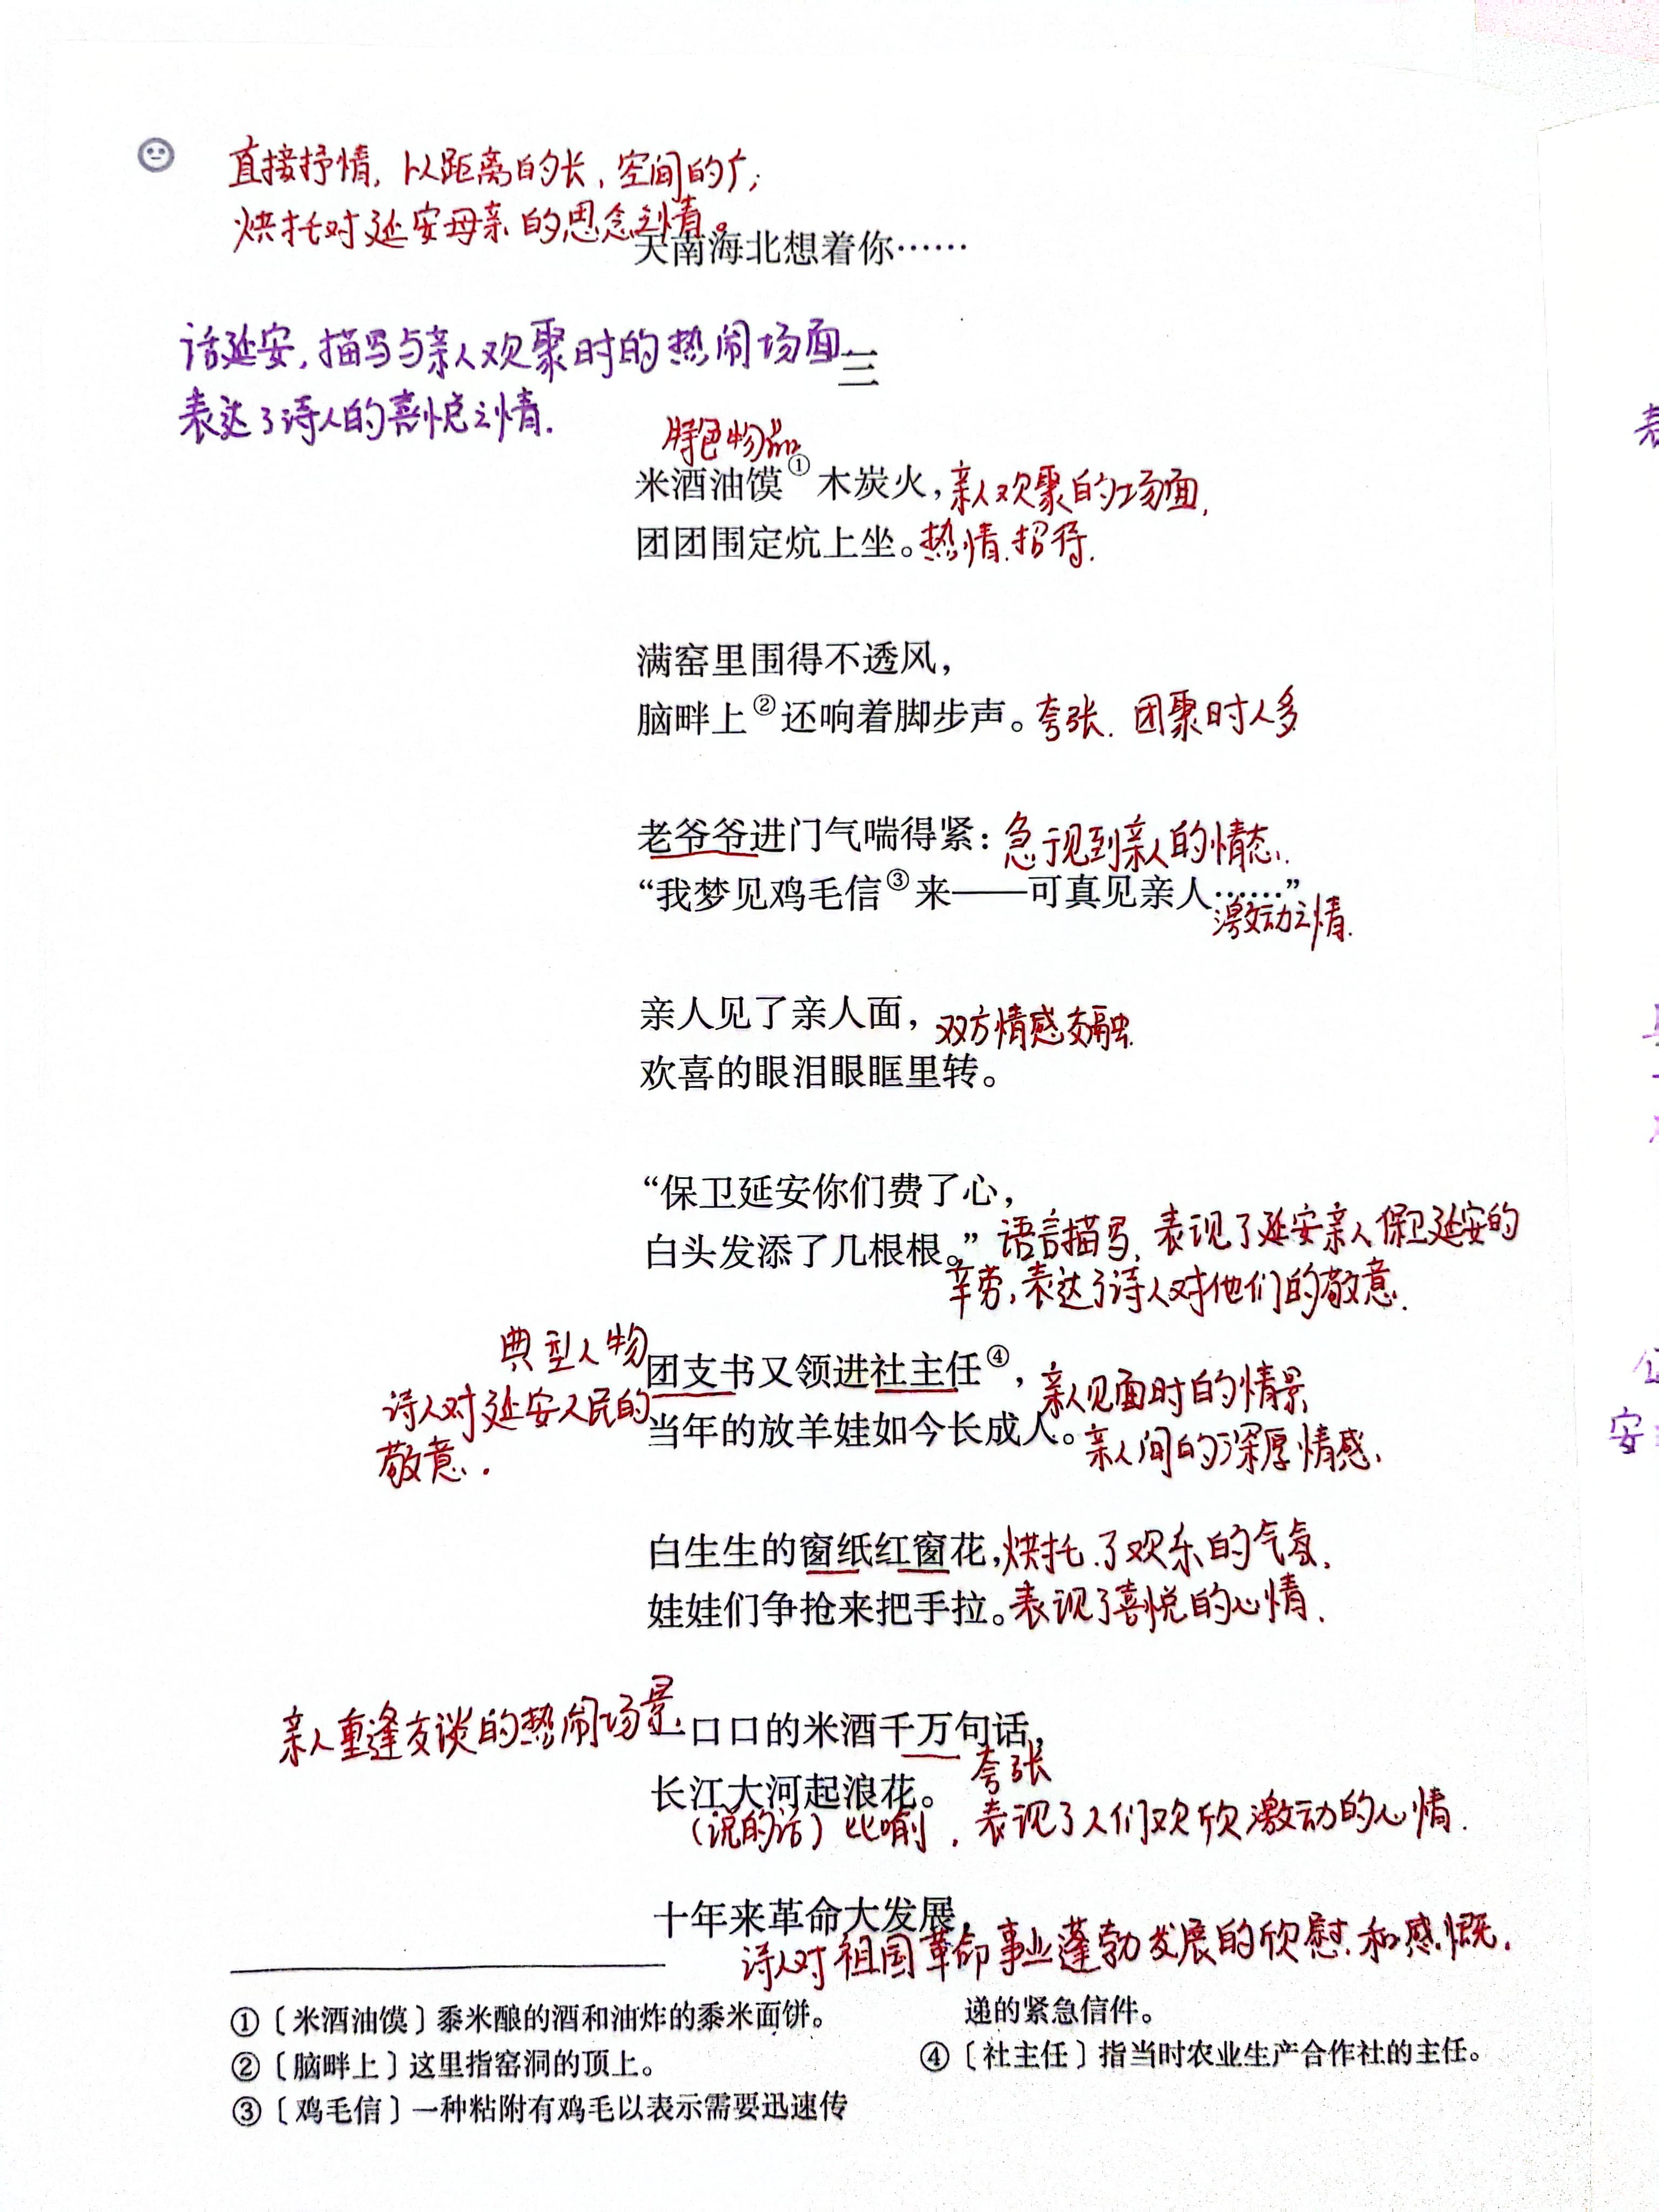 直接抒情，以距离的长，空间的广，
烘托对延安母亲的思念之情。
天南海北想着你……
话延安，描写与亲人欢聚时的热闹场面，
三
表达了诗人的喜悦之情.
特色物品
米酒油馍①木炭火，亲人欢聚的场面，
团团围定炕上坐。热情招待.
满窑里围得不透风，
脑畔上②还响着脚步声。夸张. 团聚时人多
老爷爷进门气喘得紧：急于见到亲人的情态.
“我梦见鸡毛信③来——可真见亲人……”
激动之情.
亲人见了亲人面，双方情感交融.
欢喜的眼泪眼眶里转。
“保卫延安你们费了心，
白头发添了几根根。”语言描写，表现了延安亲人保卫延安的
辛劳，表达了诗人对他们的敬意.
典型人物
团支书又领进社主任④，亲人见面时的情景
诗人对延安人民的
当年的放羊娃如今长成人。亲人间的深厚情感.
敬意.
白生生的窗纸红窗花，烘托了欢乐的气氛.
娃娃们争抢来把手拉。表现了喜悦的心情.
亲人重逢交谈的热闹场景.
一口口的米酒千万句话，
夸张
长江大河起浪花。
（说的话）比喻，表现了人们欢欣激动的心情.
十年来革命大发展，
诗人对祖国革命事业蓬勃发展的欣慰和感慨.
①〔米酒油馍〕黍米酿的酒和油炸的黍米面饼。
②〔脑畔上〕这里指窑洞的顶上。
③〔鸡毛信〕一种粘附有鸡毛以表示需要迅速传
递的紧急信件。
④〔社主任〕指当时农业生产合作社的主任。
表
安